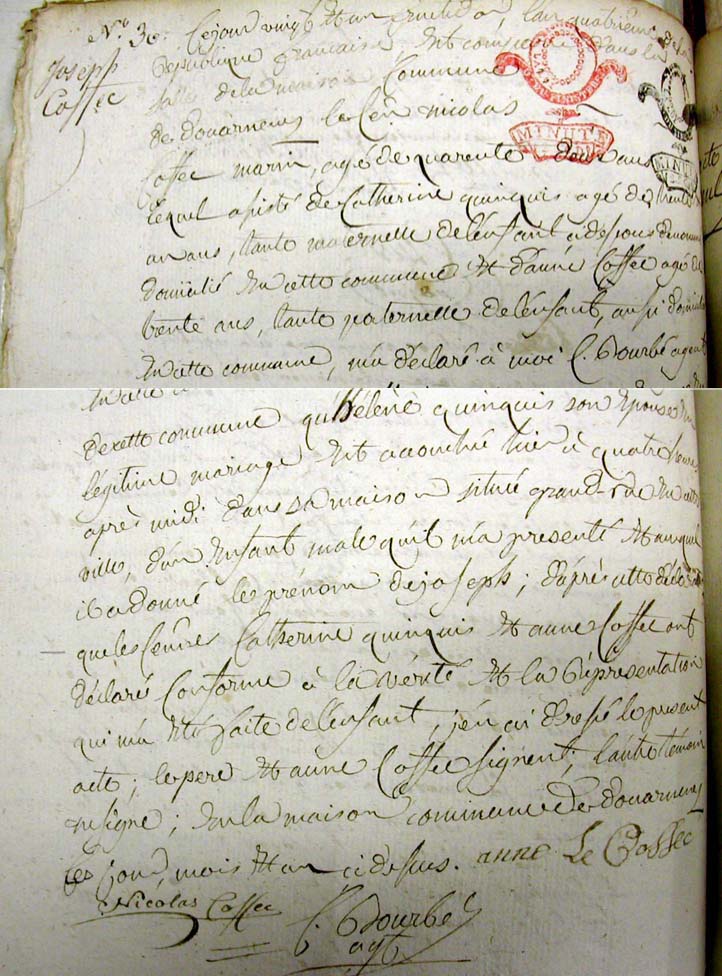 N.° 30.
Joseph
Coffec
Cejour vingt et un fructidor, l'an quatrième de la
République française est comparu dans la
salle de la maison Commune
de douarnenes le Cen nicolas
Coffec marin, agé de quarente deux ans
lequel assisté de Catherine quinquis agé de trente
un ans, tante maternelle de l'enfant cidessous denommé
domicilié en cette commune et d'anne Coffec agé de
trente ans, tante paternelle de l'enfant, aussi domicilié
en cette commune, m'a déclaré à moi C. Bourbé agent
MINUTE
MINUTE
de cette commune qu'hélène quinquis son épouse en
légitime mariage est accouché hier à quatre heures
après midi dans sa maison situé grand-rue en cette
ville, d'un enfant male qu'il m'a presenté et auquel
il a donné le prénom de joseph; d'après cette déclaration
que les Cennes Catherine quinquis et anne Coffec ont
déclaré Conforme à la vérité et la représentation
qui m'a été faite de l'enfant, j'en ai dressé le present
acte; le pere et anne Coffec signent, l'autre témoin
ne signe; en la maison commune de douarnenes
les jour, mois et an cidessus. anne Le Coffec
Nicolas Coffec
C. Bourbé
agt